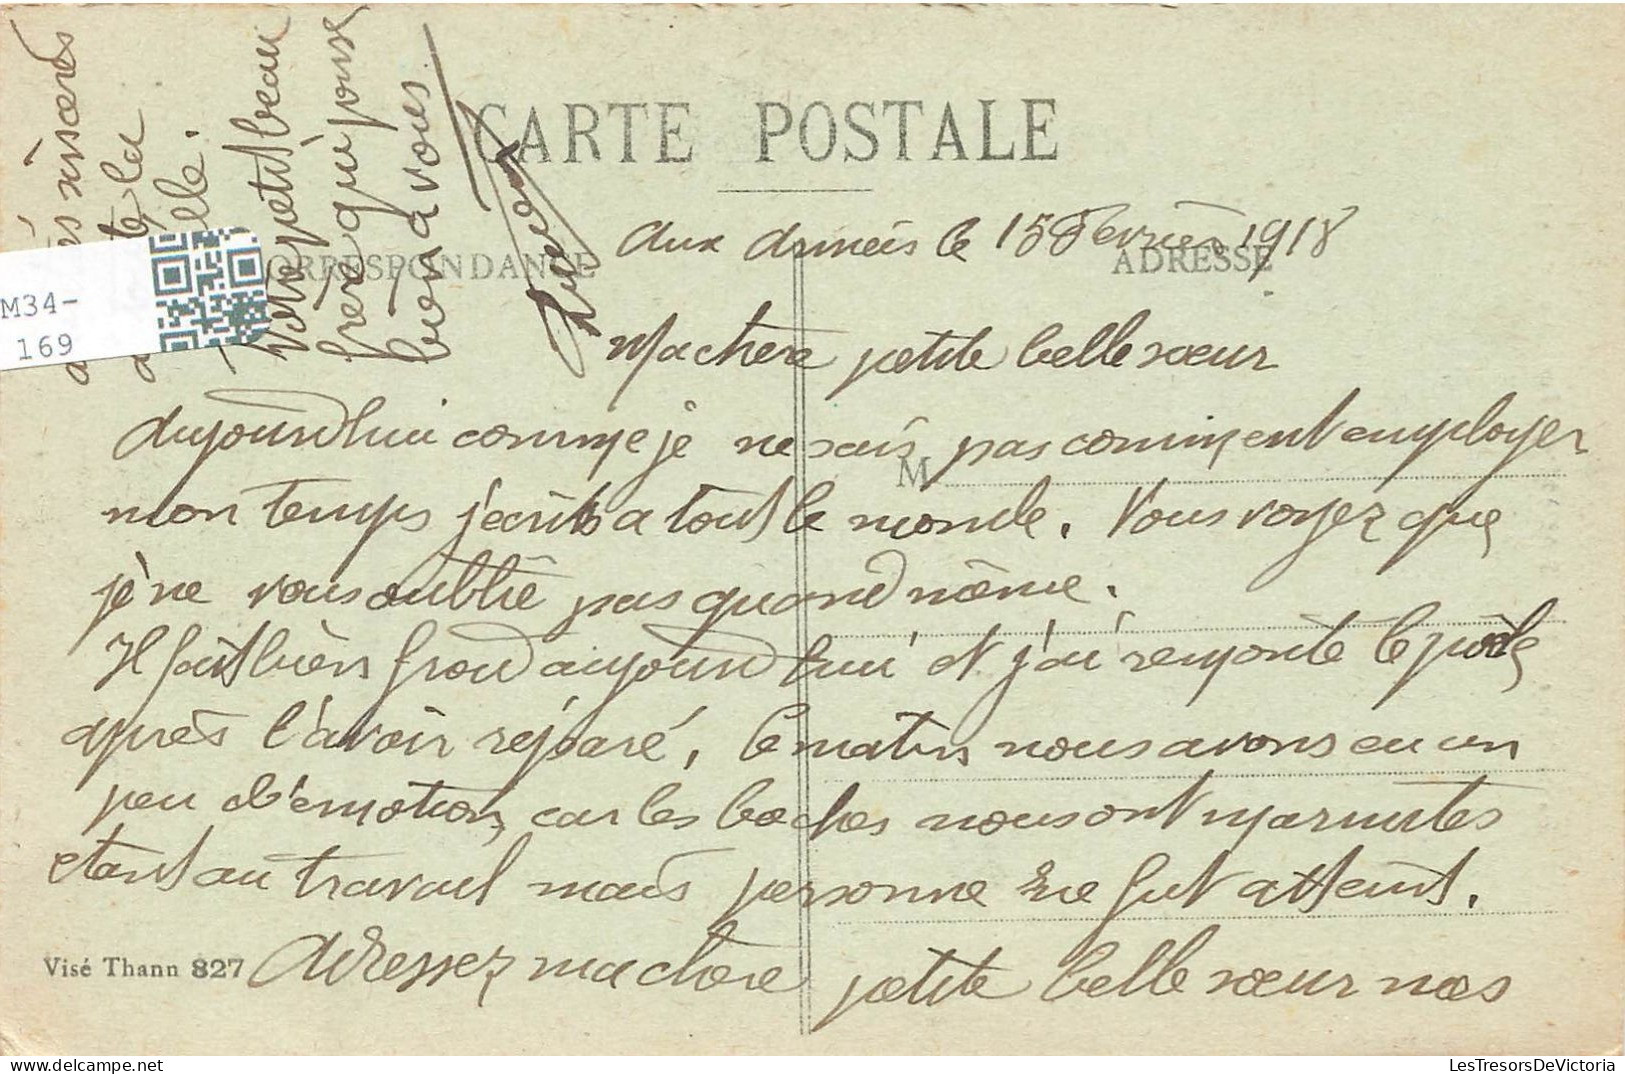 CARTE POSTALE
CORRESPONDANCE
ADRESSE
aux armées le 15 Fevrier 1918
Ma chere petite belle sœur
aujourd'hui comme je ne sais pas comment employer
M
mon temps j'ecris a tout le monde. Vous voyez que
je ne vous oublie pas quand même.
Il fait bien froid aujourd'hui et j'ai remonté le poele
après l'avoir réparé, le matin nous avons eu un
peu d'émotion, car les boches nous ont marmites
etant au travail mais personne ne fut atteint.
Visé Thann 827
Adressez ma chere petite belle sœur nos
sincères
à la
Votre petit beau
frère qui pense
bien à vous
M34-
169
LesTresorsDeVictoria